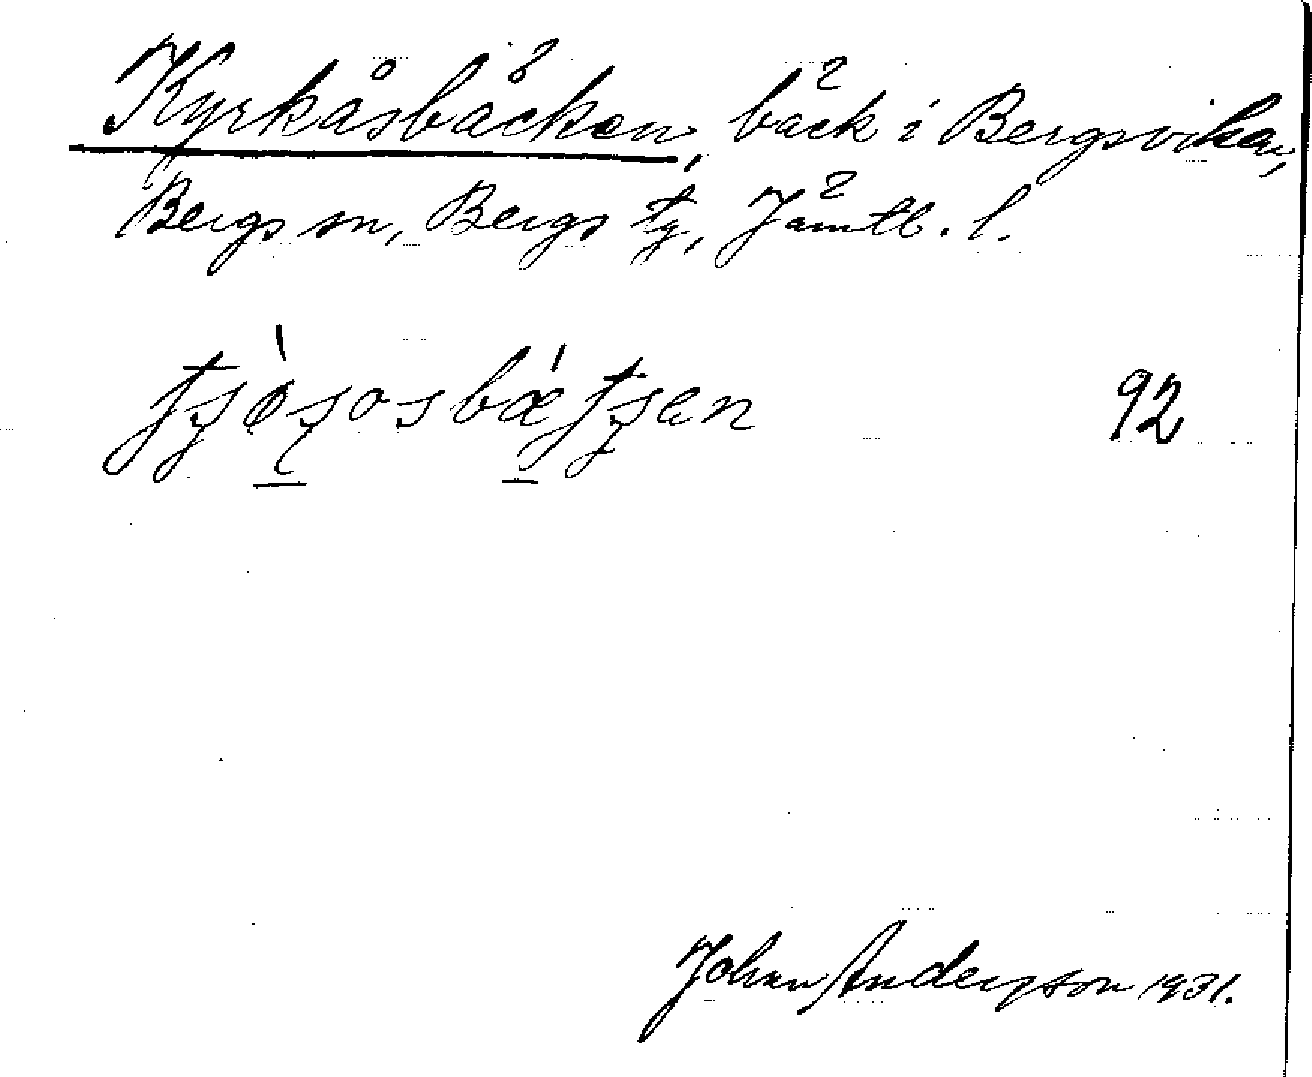 Kyrkåsbäcken, bäck i Bergsviken,
Bergs sn, Bergs tg, Jämtl. l.
92
Johan Andersson 1931.